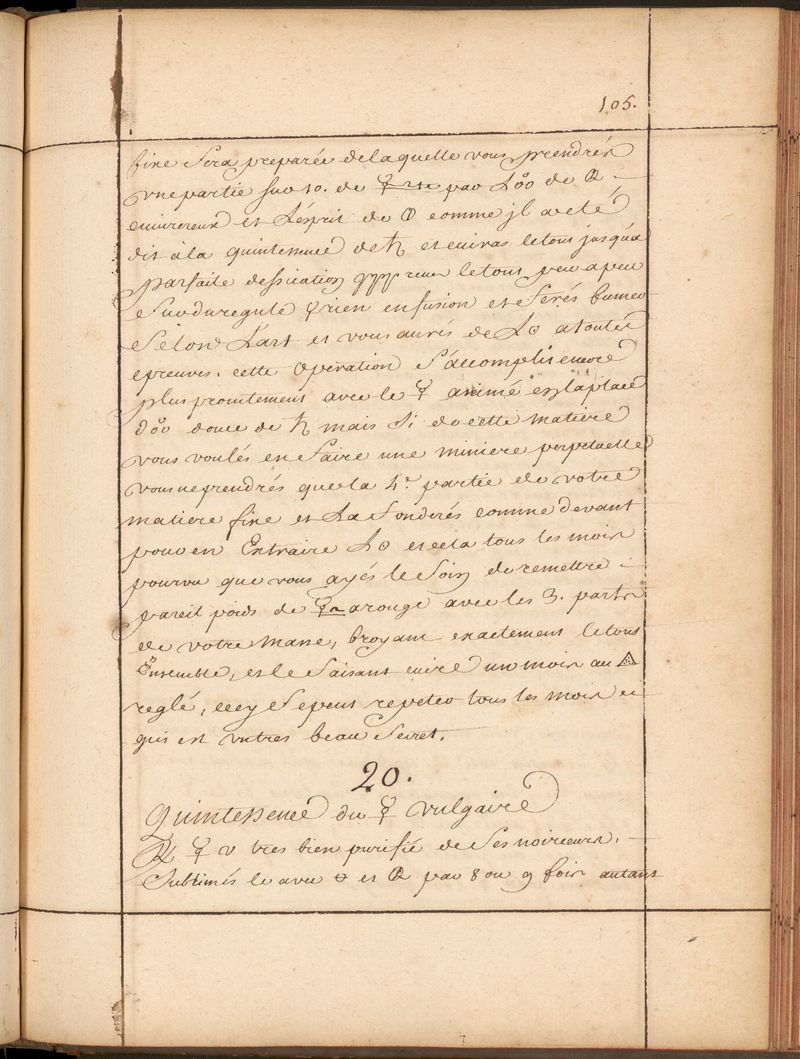 105.
fine Sera preparée de laquelle vous prendrés
une partie sur 10. de ☿ par L'♁ de
et L'esprit de comme jl a eté
dit à la quintessence de ♄ et cuiras le tout jusqu'a
parfaite dessication le tout peu a peu
Sur du regule en fusion et ferés fumer
Selon L'art et vous aurés de L☉ a toutes
epreuves. cette operation S'accomplit encore
plus promtement avec le ☿ animé en la place
d'♁ douce de ♄ mais Si de cette matiere
vous voulés en faire une miniere perpetuelle
vous ne prendrés que la 4.e partie de votre
matiere fine et La fonderés comme devant
pour en Extraire L☉ et cela tous les mois
pourvu que vous ayés le Soin de remettre
pareil poids de ☿ rouge avec les 3. parts
de votre masse, broyant exactement le tout
Ensemble, et le faisant cuire un mois au 🜂
reglé, cecy Se peut repeter tous les mois ce
qui est un tres beau Secret.
20.
Quintessence du ☿ vulgaire
℞ ☿ v tres bien purifié de Ses noirceurs.
Sublimés le avec et par 8 ou 9 fois autant